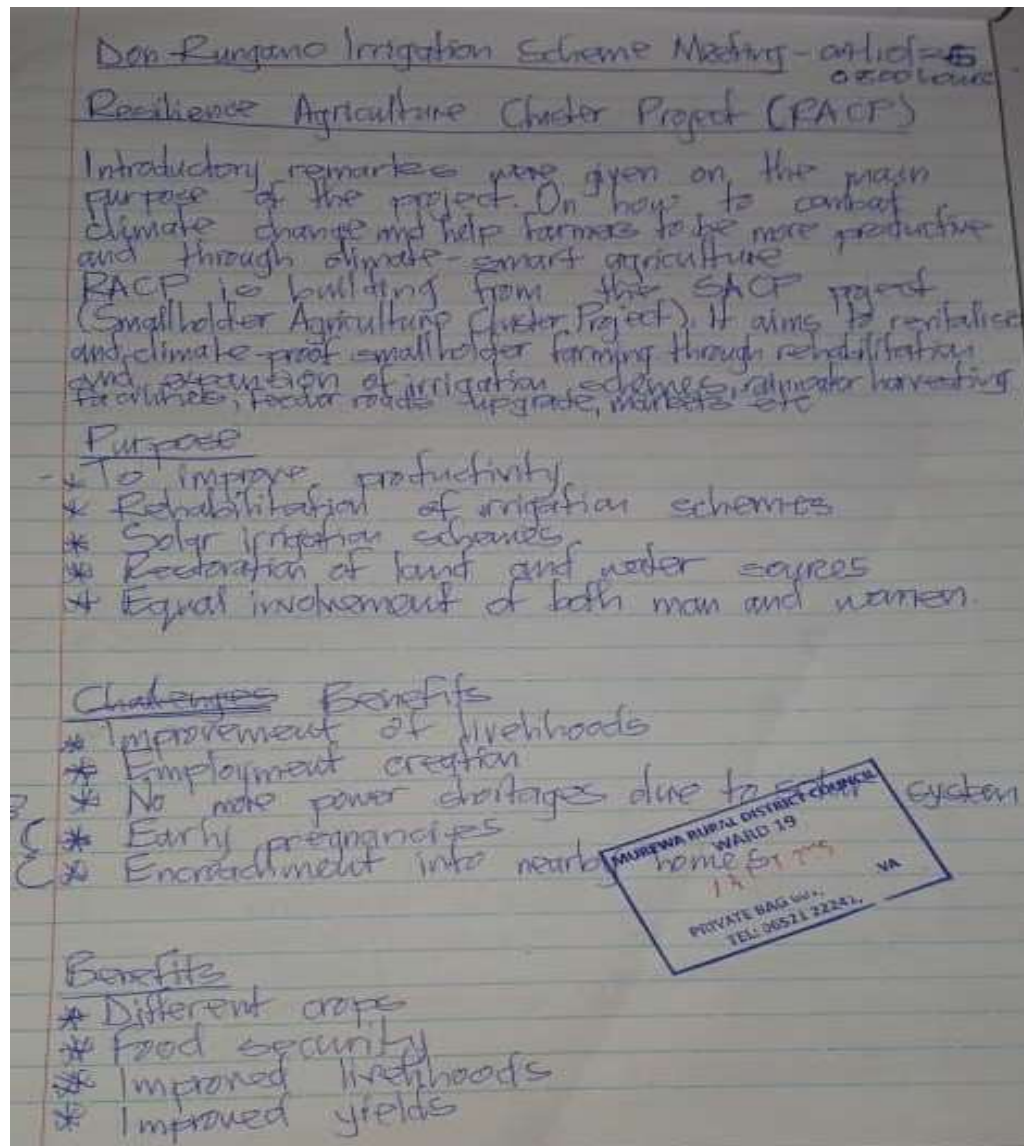 Don Rungano Irrigation Scheme Meeting -
0800 hours
Resilience Agriculture Cluster Project (RACP)
Introductory remarks were given on the main
purpose of the project. On how to combat
climate change and help farmers to be more productive
and through climate-smart agriculture
RACP is building from the SACP project
(Smallholder Agriculture Cluster Project). It aims to revitalise
and climate-proof smallholder farming through rehabilitation
and expansion of irrigation schemes, rainwater harvesting
facilities, feeder roads upgrade, markets etc
Purpose
- * To improve productivity
* Rehabilitation of irrigation schemes
* Solar irrigation schemes
* Restoration of land and water sources
* Equal involvement of both man and women.
Challenges Benefits
* Improvement of livelihoods
* Employment creation
* No more power shortages due to system
C * Early pregnancies
C * Encroachment into nearby homes
MUREWA RURAL DISTRICT COUNCIL
WARD 19
VA
PRIVATE BAG
TEL: 06521 22241,
Benefits
* Different crops
* Food security
* Improved livelihoods
* Improved yields